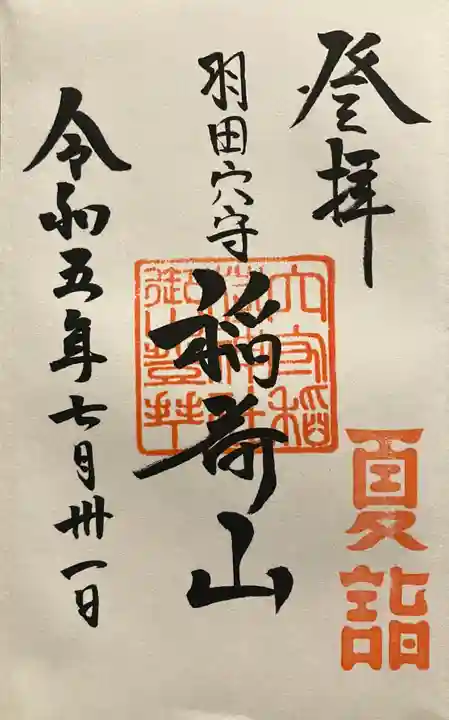 登拝
夏詣
羽田穴守
稲荷山
穴守稲
荷神社
御山登拝
令和五年七月卅一日